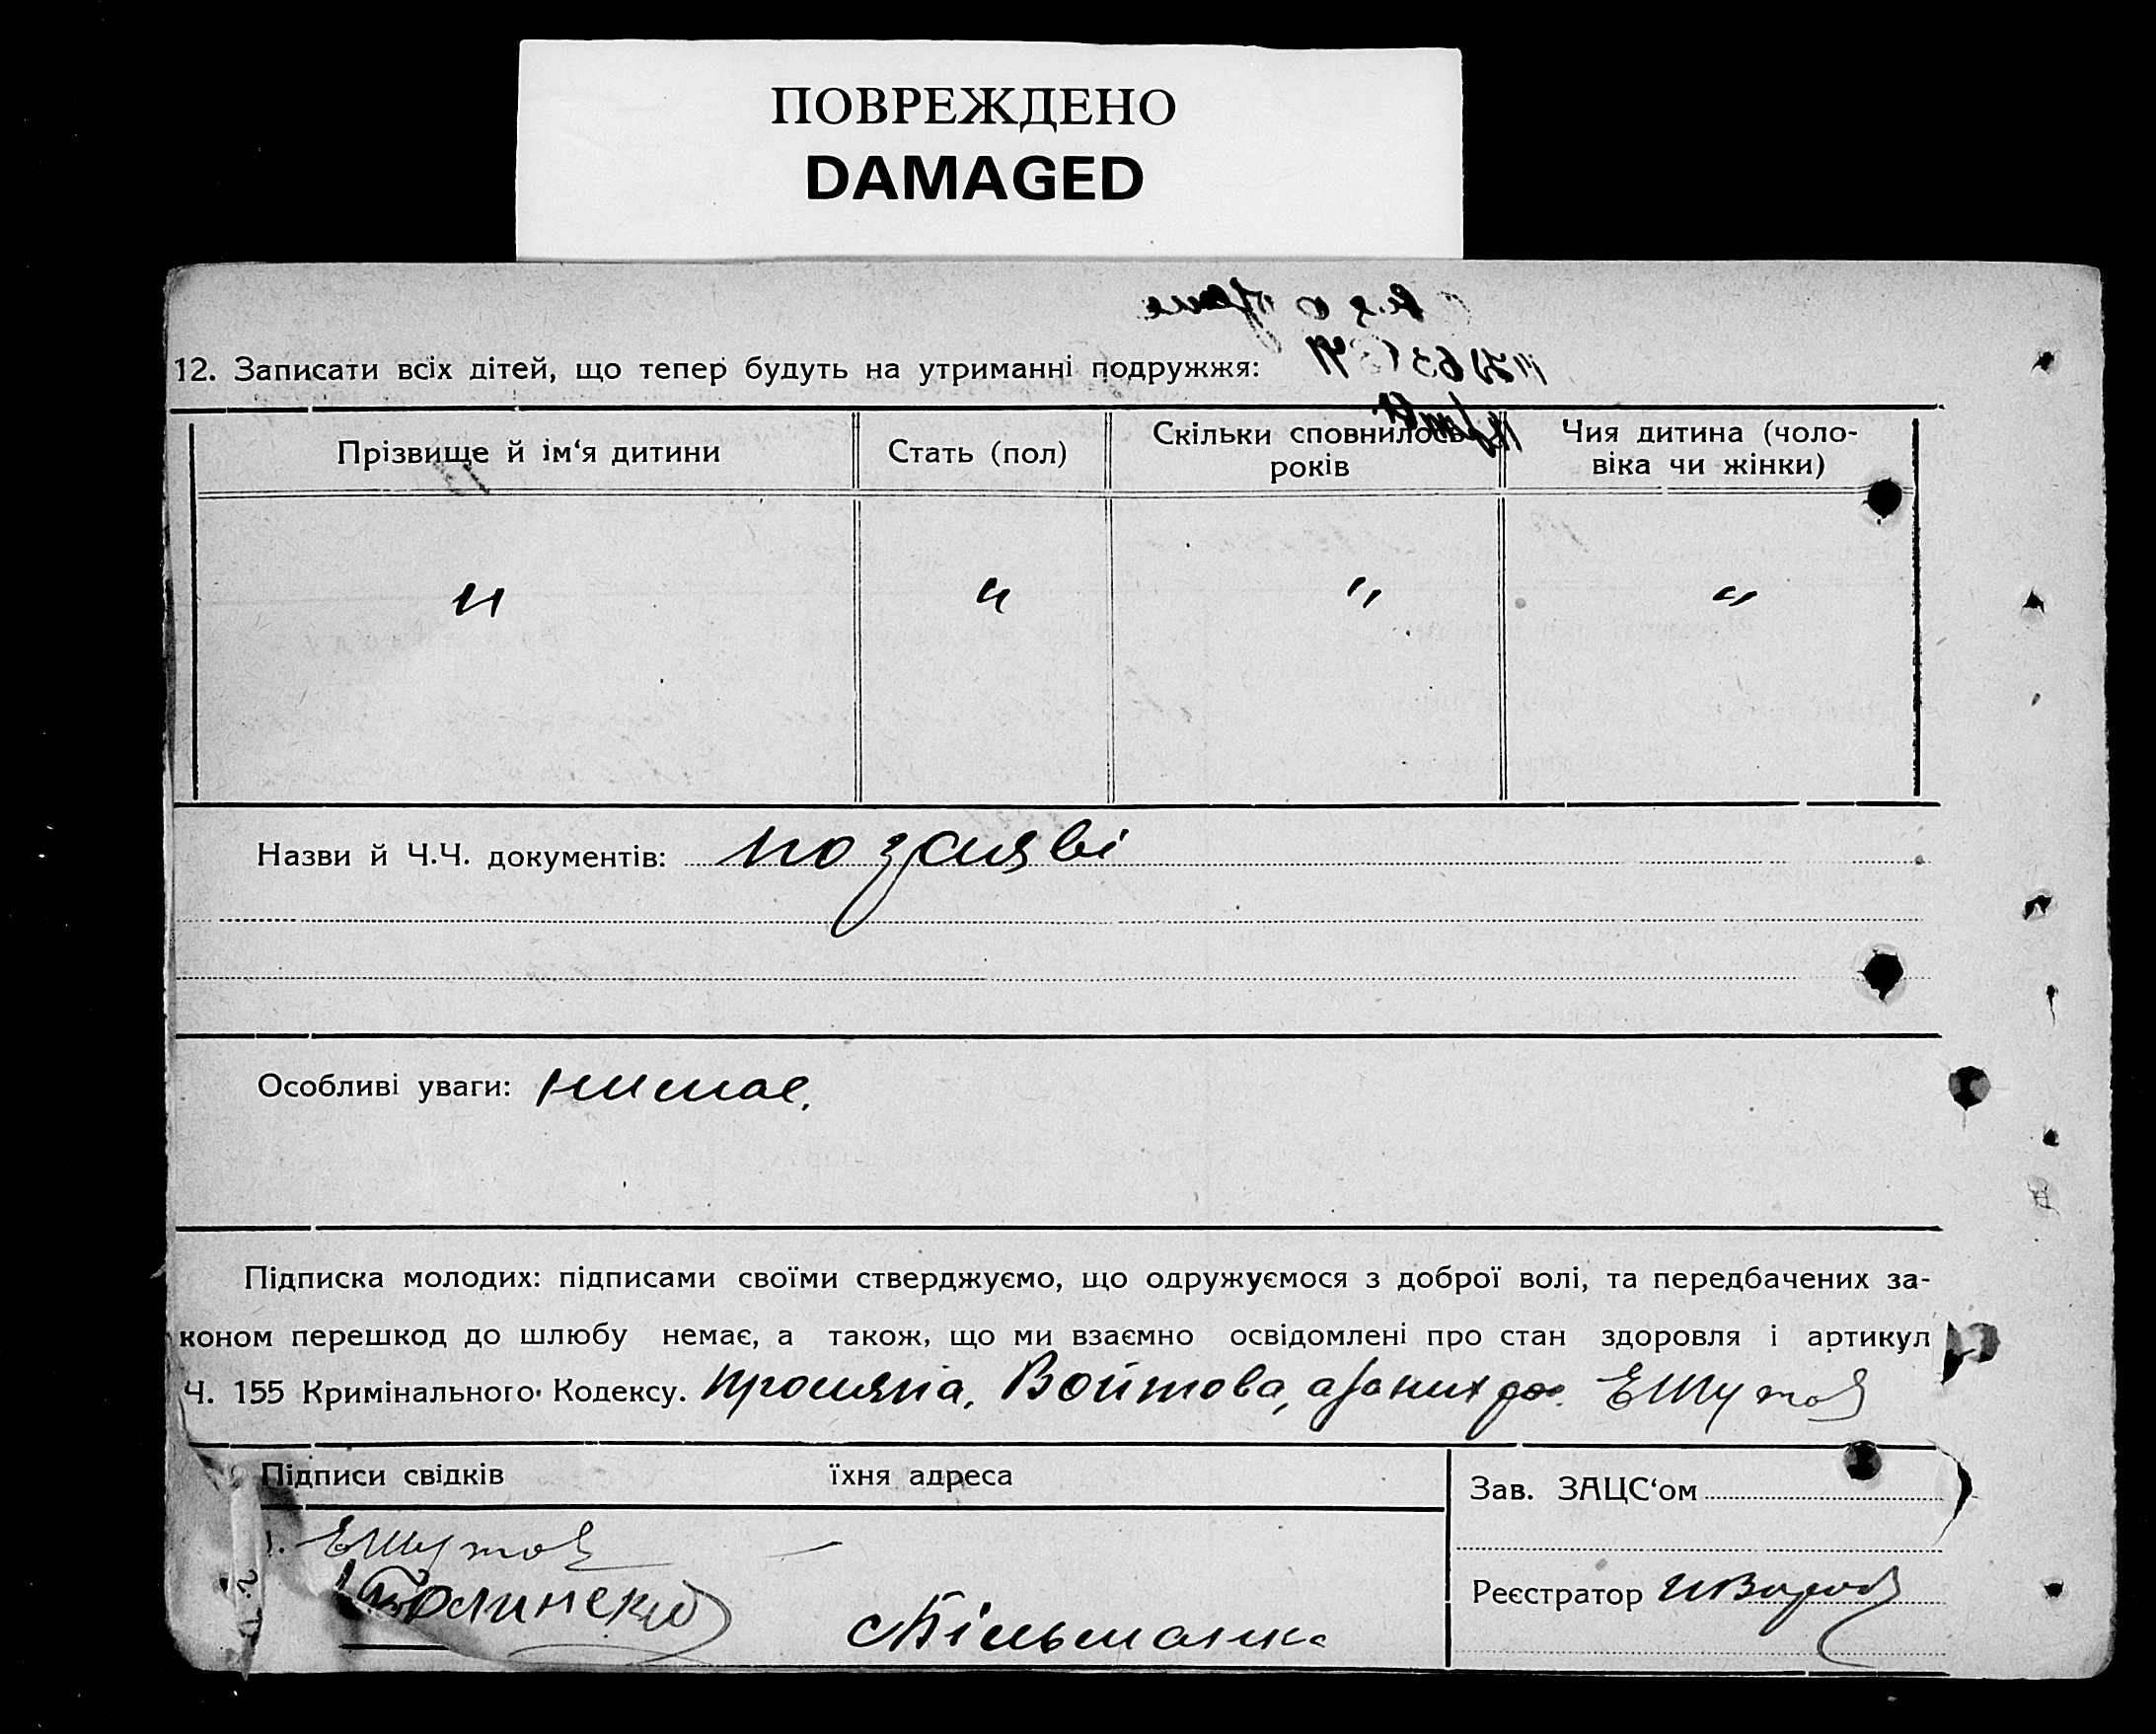 ПОВРЕЖДЕНО
DAMAGED
12. Записати всіх дітей, що тепер будуть на утриманні подружжя:
Прізвище й ім‘я дитини
Стать (пол)
Скільки сповнилось
років
Чия дитина (чоло-
віка чи жінки)
" " " "
Назви й Ч.Ч. документів: по заяві
Особливі уваги: нимає.
Підписка молодих: підписами своїми стверджуємо, що одружуємося з доброї волі, та передбачених за-
коном перешкод до шлюбу немає, а також, що ми взаємно освідомлені про стан здоровля і артикул
Ч. 155 Кримінального Кодексу. Войтова, ЕШутов
Підписи свідків їхня адреса
Зав. ЗАЦС‘ом
1. ЕШутов —
Реєстратор
2.